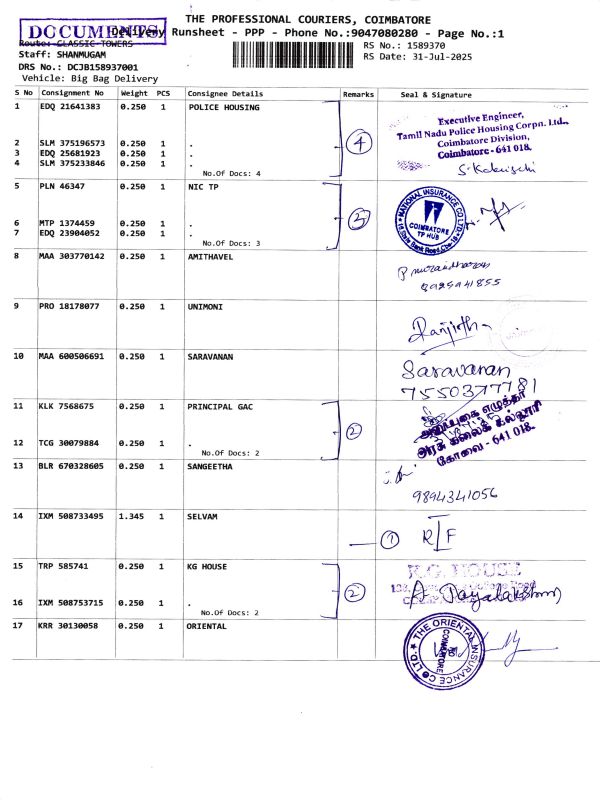 THE PROFESSIONAL COURIERS, COIMBATORE
DOCUMENTS
Delivery Runsheet - PPP - Phone No.:9047080280 - Page No.:1
Route: CLASSIC TOWERS
RS No.: 1589370
Staff: SHANMUGAM
RS Date: 31-Jul-2025
DRS No.: DCJB158937001
Vehicle: Big Bag Delivery
S No Consignment No Weight PCS Consignee Details Remarks Seal & Signature
1 EDQ 21641383 0.250 1 POLICE HOUSING
Executive Engineer,
Tamil Nadu Police Housing Corpn. Ltd.,
Coimbatore Division,
Coimbatore - 641 018.
2 SLM 375196573 0.250 1 .
3 EDQ 25681923 0.250 1 .
4 SLM 375233846 0.250 1 .
No.Of Docs: 4
4
5 PLN 46347 0.250 1 NIC TP
NATIONAL INSURANCE CO LTD
COIMBATORE
TP HUB
State Bank Road, Cbe-18
6 MTP 1374459 0.250 1 .
7 EDQ 23904052 0.250 1 .
No.Of Docs: 3
3
8 MAA 303770142 0.250 1 AMITHAVEL
9 PRO 18178077 0.250 1 UNIMONI
Ranjith
10 MAA 600506691 0.250 1 SARAVANAN
Saravanan
7550377781
11 KLK 7568675 0.250 1 PRINCIPAL GAC
அரசு கலைக் கல்லூரி
கோவை - 641 018.
12 TCG 30079884 0.250 1 .
No.Of Docs: 2
2
13 BLR 670328605 0.250 1 SANGEETHA
9894341056
14 IXM 508733495 1.345 1 SELVAM
1
R/F
15 TRP 585741 0.250 1 KG HOUSE
K.G. HOUSE
16 IXM 508753715 0.250 1 .
No.Of Docs: 2
2
17 KRR 30130058 0.250 1 ORIENTAL
THE ORIENTAL INSURANCE CO LTD.
COIMBATORE